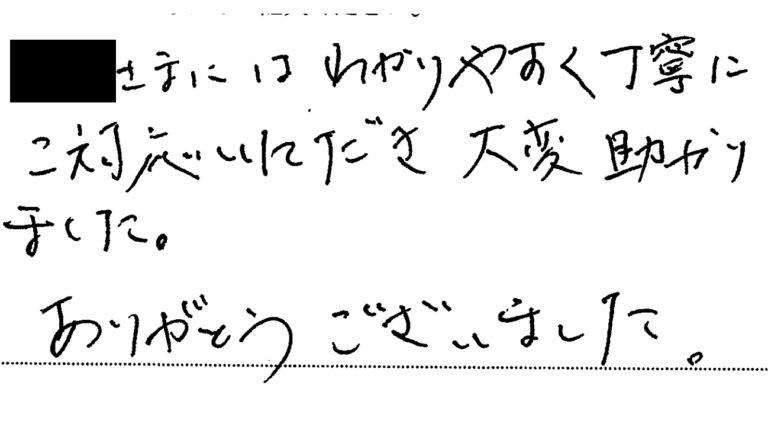 さまには わかりやすく丁寧に
ご対応いただき 大変 助かり
ました。
ありがとう ございました。